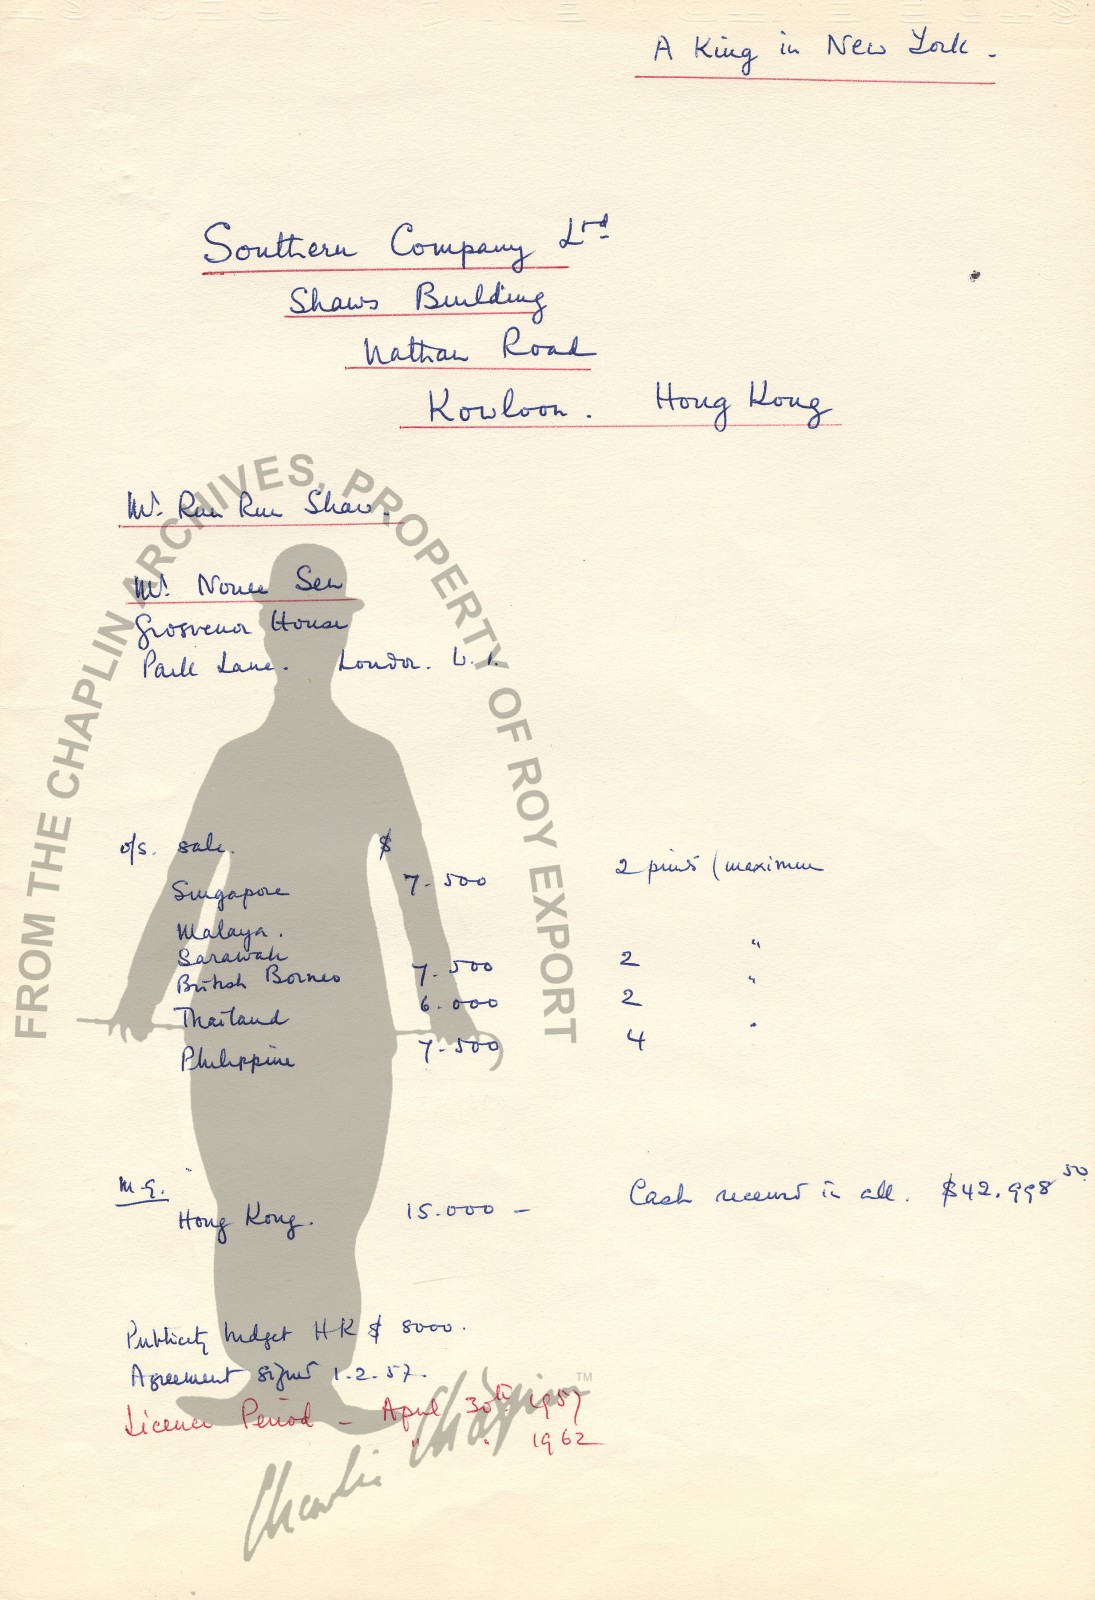 A King in New York -
Southern Company Ltd
Shaws Building
Nathan Road
Kowloon. Hong Kong
Mr. Run Run Shaw.
Mr. Nonee Sen
Grosvenor House
Park Lane. London. W.1.
o/s. sale. $
Singapore 7.500 2 prints (maximum
Malaya.
Sarawak "
British Borneo 7.500 2 "
Thailand 6.000 2 "
Philippine 7.500 4
M.G. "
Hong Kong. 15.000 - Cash received in all. $42.998 50
Publicity budget HK $ 8000.
Agreement signed 1.2.57.
Licence Period - April 30th 1957
" " 1962
FROM THE CHAPLIN ARCHIVES, PROPERTY OF ROY EXPORT
Charlie Chaplin TM